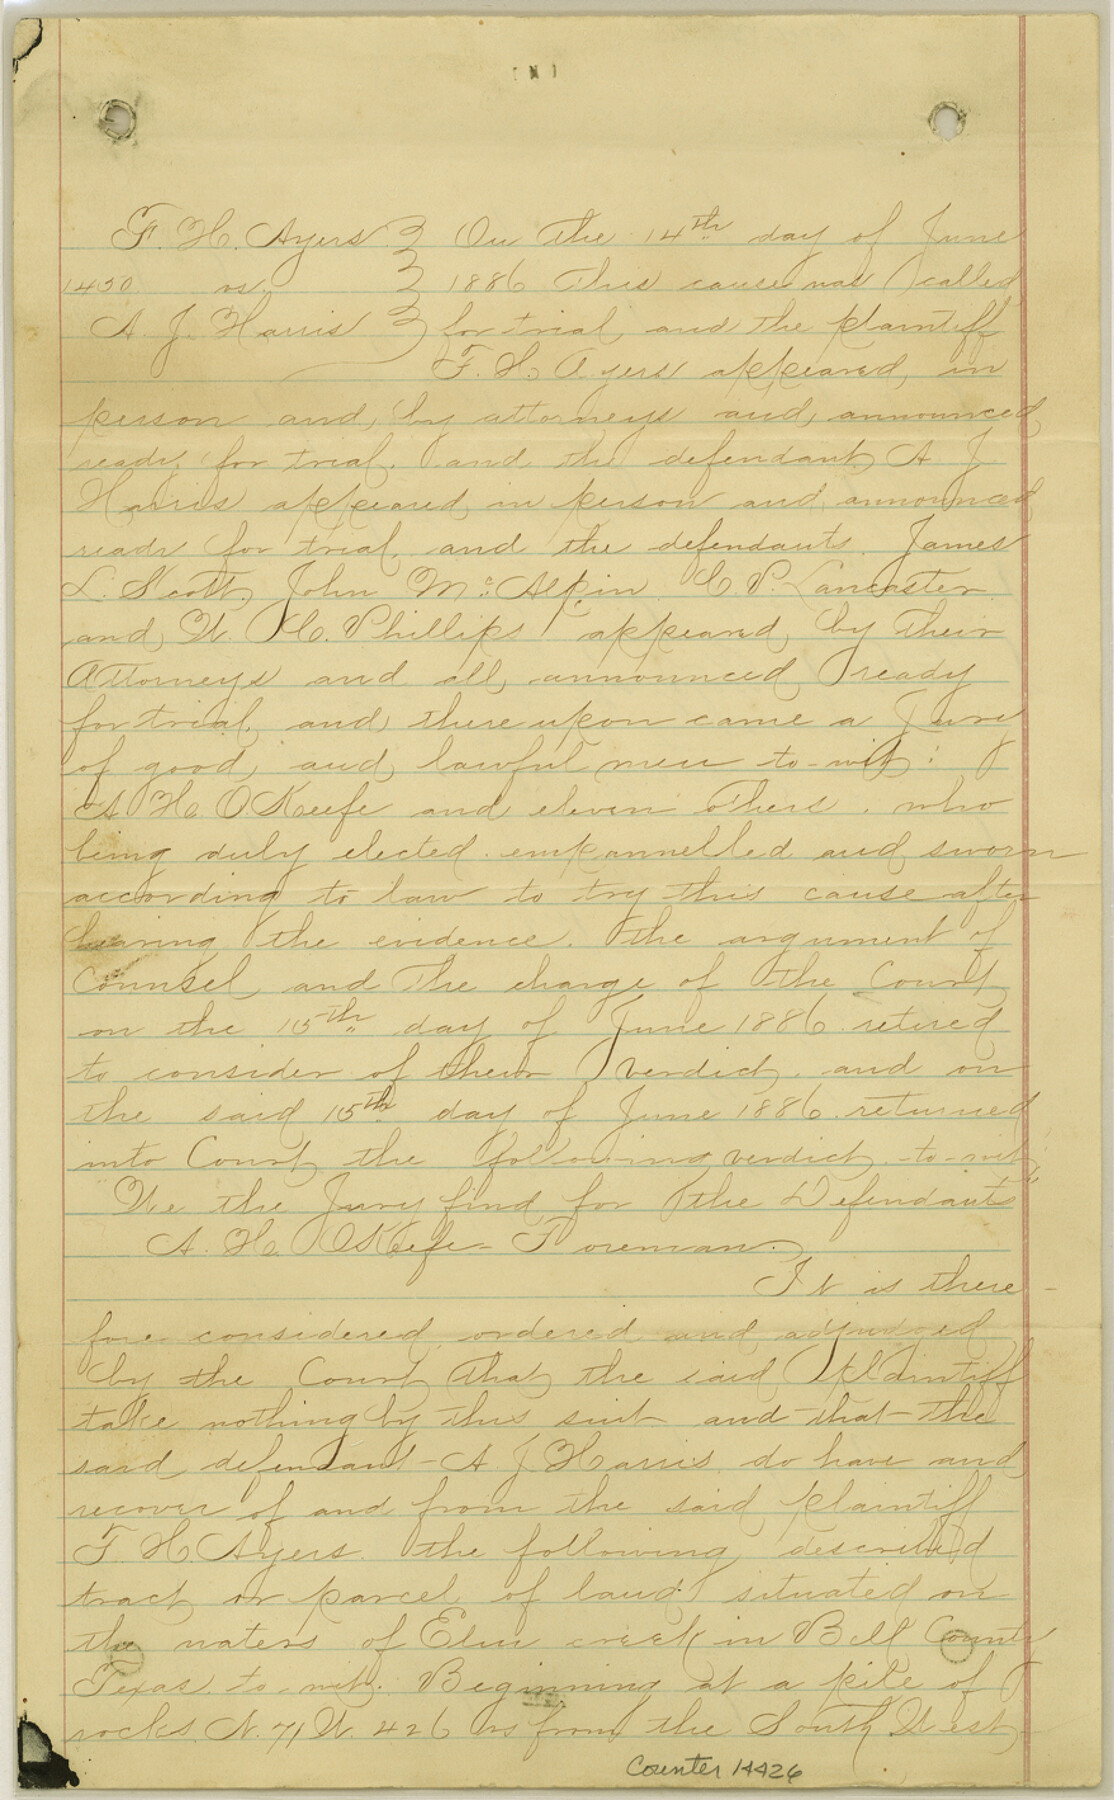 [ N ]
F. H. Ayers } On the 14th day of June
1450 vs. } 1886 this cause was called
A. J. Harris } for trial and the plaintiff
F. H. Ayers appeared in
person and by attorneys and announced
ready for trial. and the defendant A. J.
Harris appeared in person and announced
ready for trial. and the defendants James
L. Scott, John McAlpin C. P. Lancaster
and W. H. Phillips appeared by their
Attorneys and all announced ready
for trial, and there upon came a Jury
of good and lawful men to-wit:
A H. O.Keefe and eleven others. who
being duly elected. empannelled and sworn
according to law to try this cause after
hearing the evidence. the argument of
Counsel and the charge of the Court
on the 15th day of June 1886 retired
to consider of their verdict. and on
the said 15th day of June 1886. returned
into Court the following verdict. to-wit,
We the Jury find for the Defendants
A. H. OKeefe- Foreman.
It is there-
fore considered ordered and adjudged
by the Court that the said plaintiff
take nothing by this suit and that the
said defendant A. J. Harris do have and
recover of and from the said plaintiff
F. H Ayers. the following described
tract or parcel of land situated on
the waters of Elm creek in Bell County
Texas. to-wit. Beginning at a pile of
rocks N. 71 W. 426 vs from the South West
Counter 14426